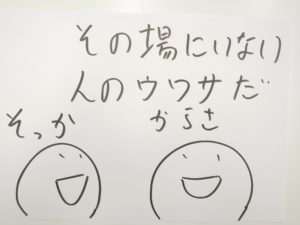 その場にいない
人のウワサだ
そっか
からさ